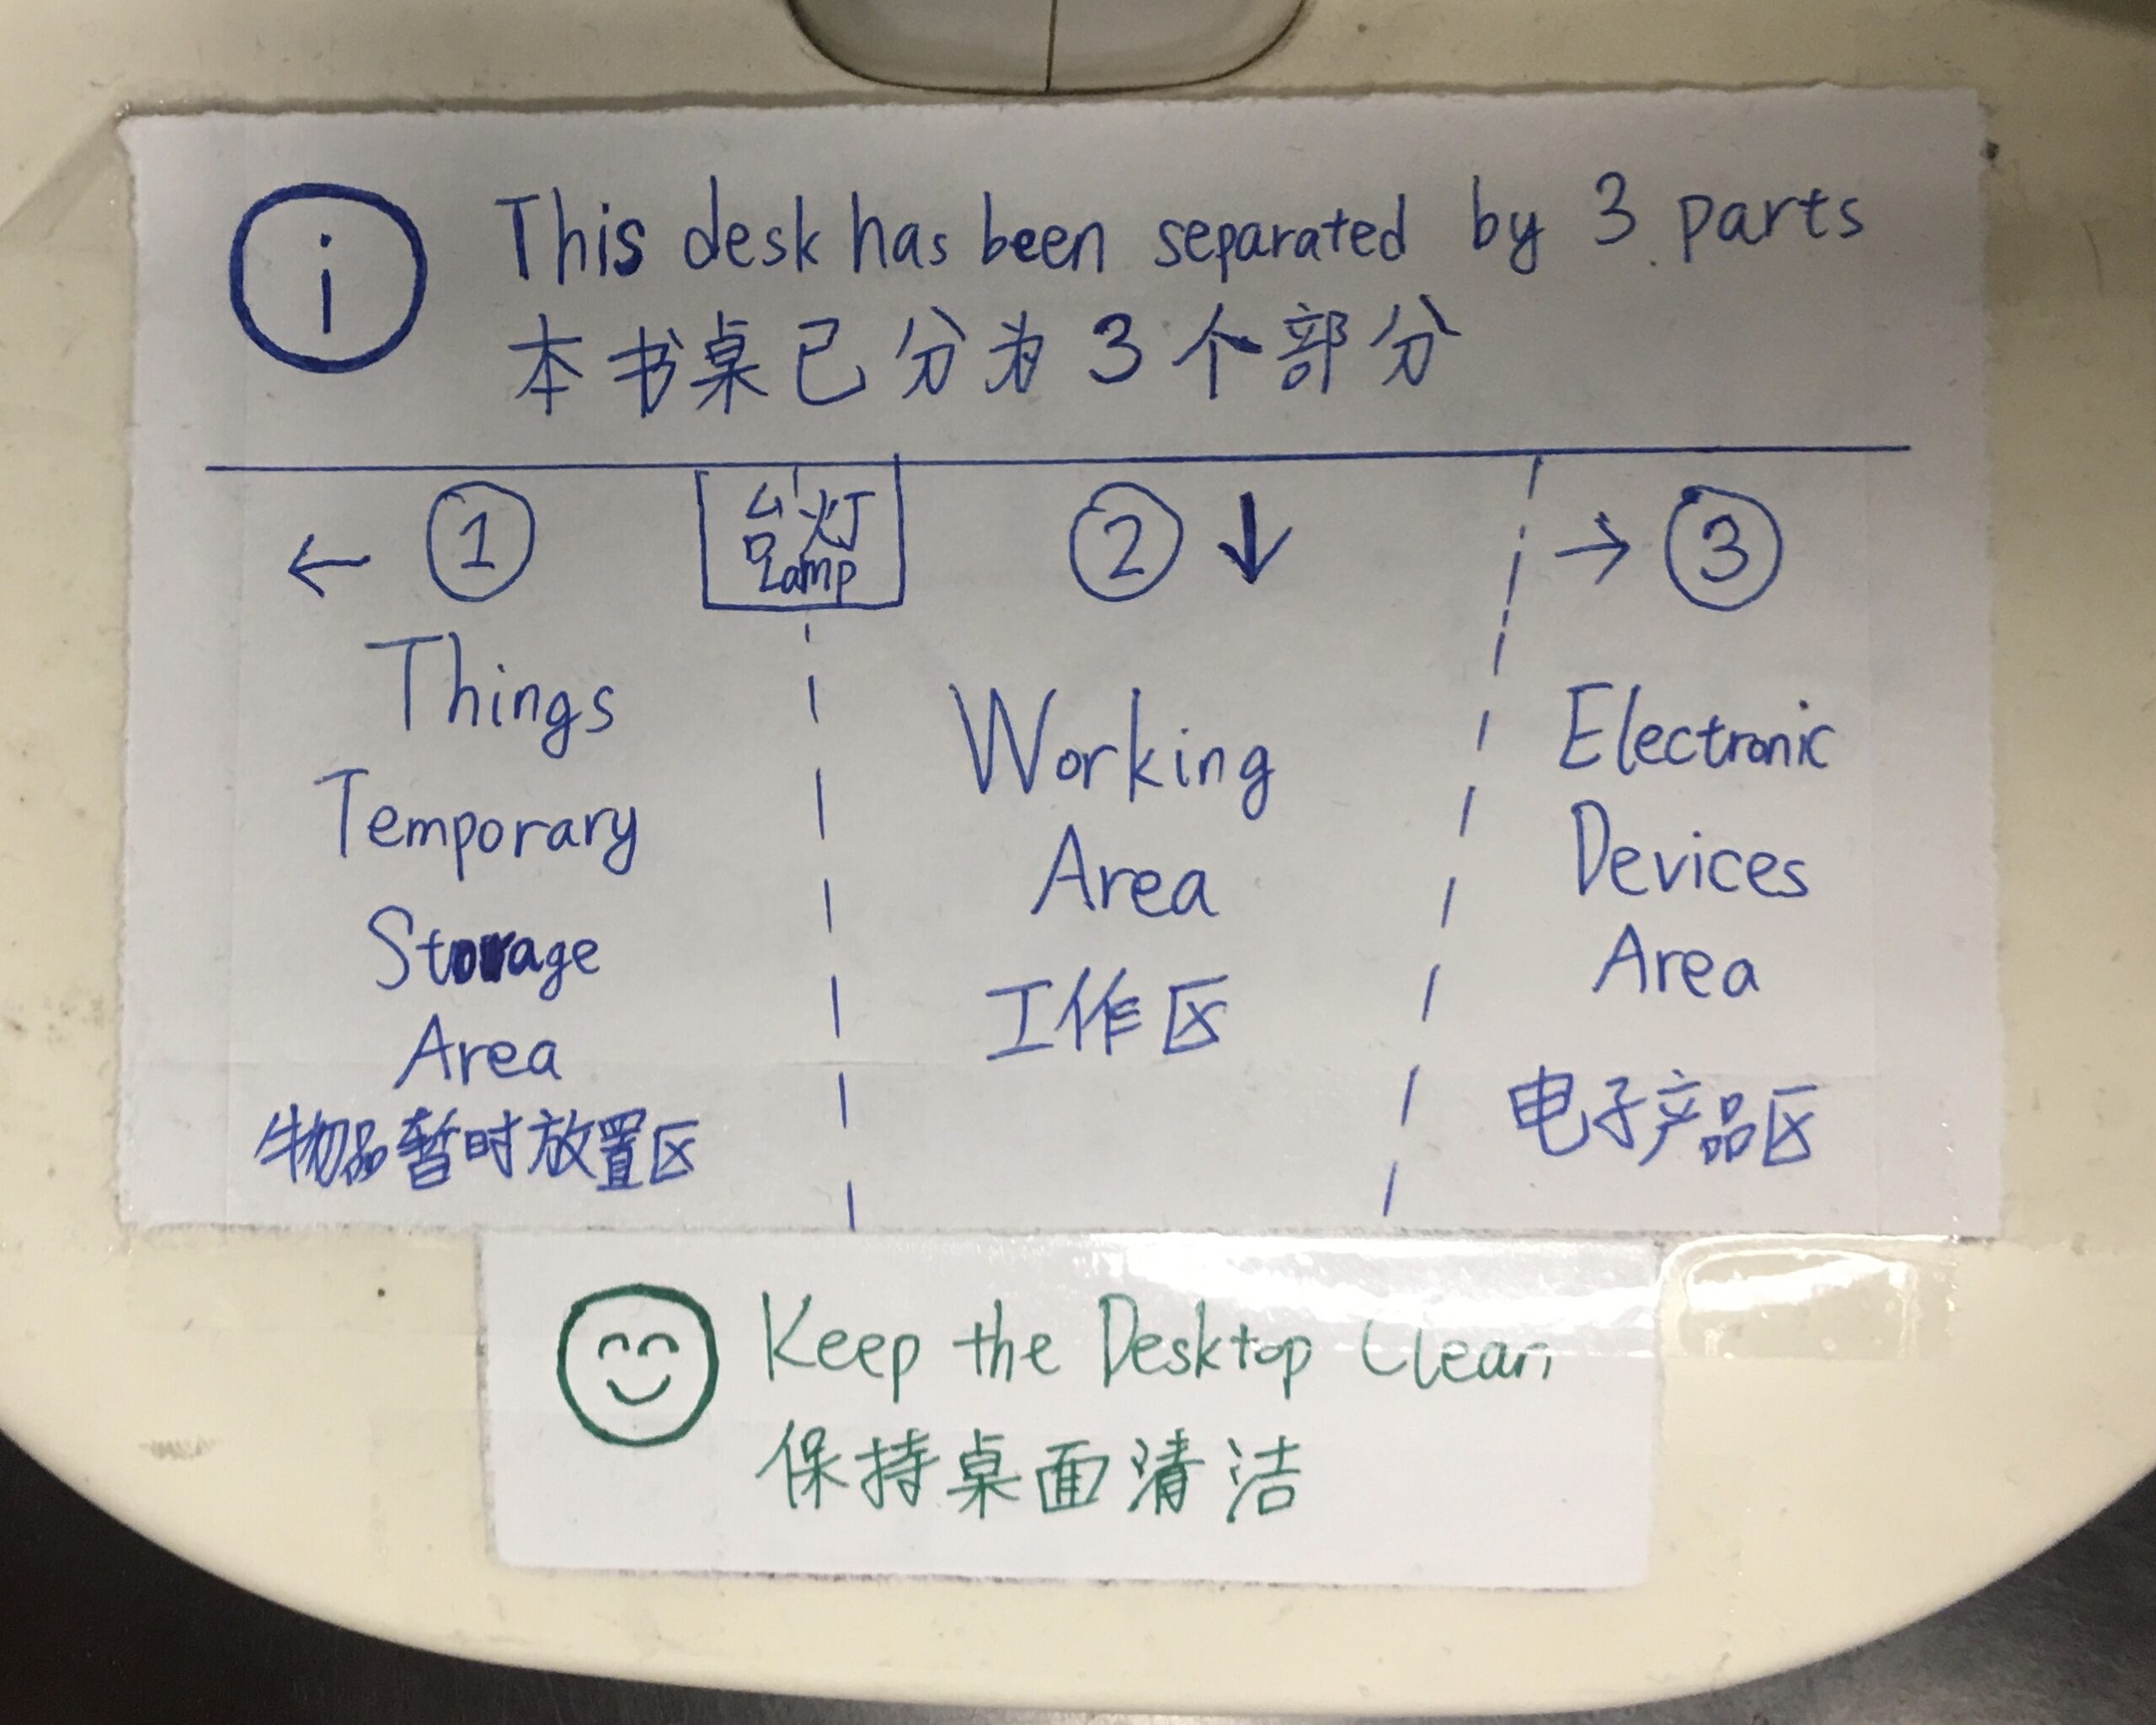 i This desk has been separated by 3 parts
本书桌已分为3个部分
← ① 台灯 ② ↓ → ③
Lamp
Things
Temporary
Storage
Area
物品暂时放置区
Working
Area
工作区
Electronic
Devices
Area
电子产品区
Keep the Desktop Clean
保持桌面清洁